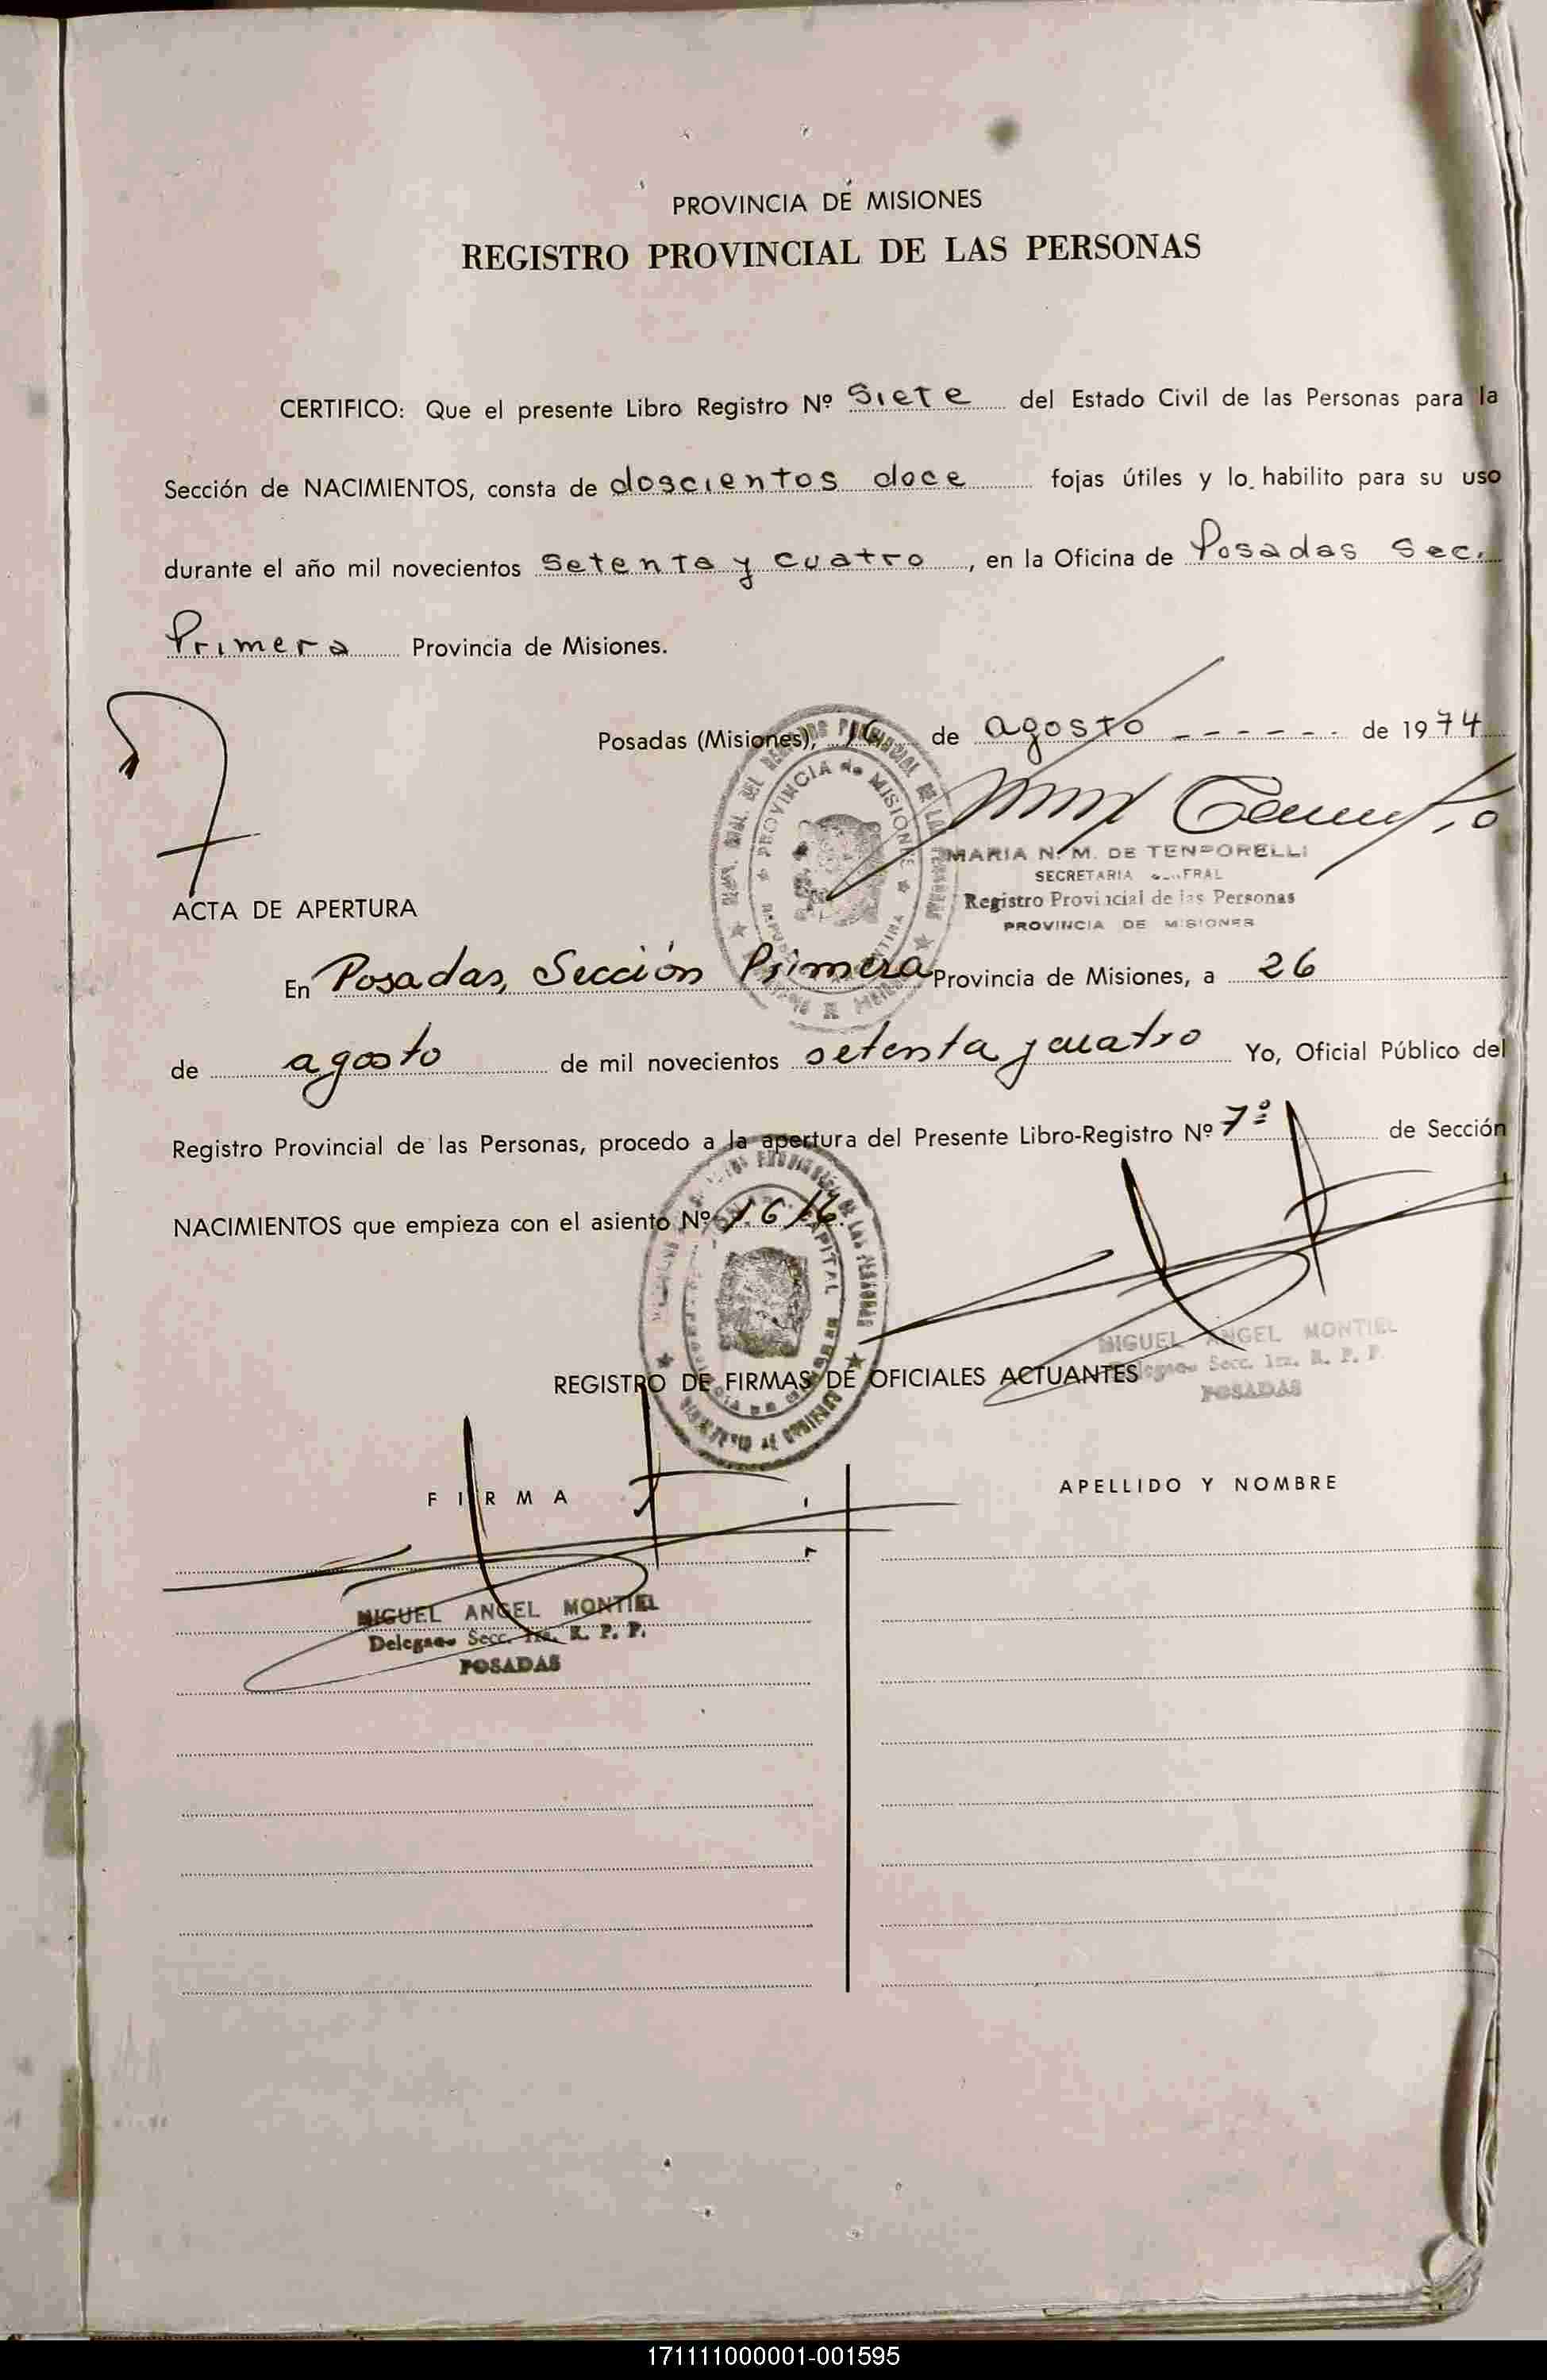 PROVINCIA DE MISIONES
REGISTRO PROVINCIAL DE LAS PERSONAS
CERTIFICO: Que el presente Libro Registro Nº Siete del Estado Civil de las Personas para la
Sección de NACIMIENTOS, consta de doscientos doce fojas útiles y lo habilito para su uso
durante el año mil novecientos setenta y cuatro, en la Oficina de Posadas Sec.
Primera Provincia de Misiones.
Posadas (Misiones), 16 de agosto ------ de 1974
MARIA N. M. DE TEMPORELLI
SECRETARIA
Registro Provincial de las Personas
PROVINCIA DE MISIONES
PROVINCIA de MISIONES
ACTA DE APERTURA
En Posadas, Sección Primera Provincia de Misiones, a 26
de agosto de mil novecientos setenta y cuatro Yo, Oficial Público del
Registro Provincial de las Personas, procedo a la apertura del Presente Libro-Registro Nº 7º de Sección
NACIMIENTOS que empieza con el asiento Nº
MIGUEL ANGEL MONTIEL
Secc. 1ra. R. P. P.
POSADAS
REGISTRO DE FIRMAS DE OFICIALES ACTUANTES
FIRMA
APELLIDO Y NOMBRE
MIGUEL ANGEL MONTIEL
Delegado Secc. 1ra. R. P. P.
POSADAS
171111000001-001595